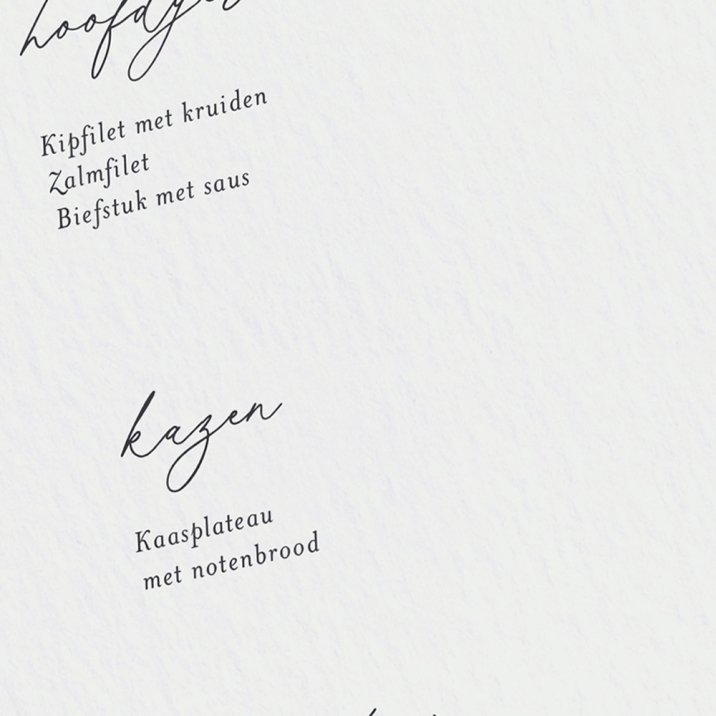 Kipfilet met kruiden
Zalmfilet
Biefstuk met saus
kazen
Kaasplateau
met notenbrood